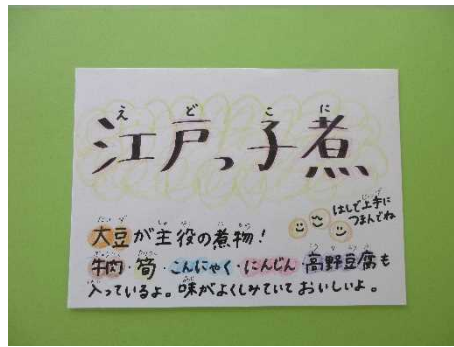 江戸っ子煮
えどこに
はしで上手に
つまんでね
大豆が主役の煮物!
牛肉・筍・こんにゃく・にんじん 高野豆腐も
入っているよ。味がよくしみていておいしいよ。